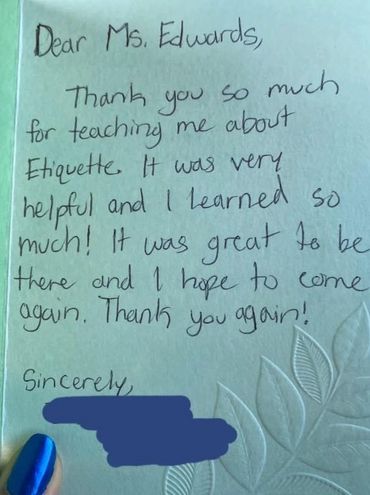 Dear Ms. Edwards,
Thank you so much
for teaching me about
Etiquette. It was very
helpful and I learned so
much! It was great to be
there and I hope to come
again. Thank you again!
Sincerely,